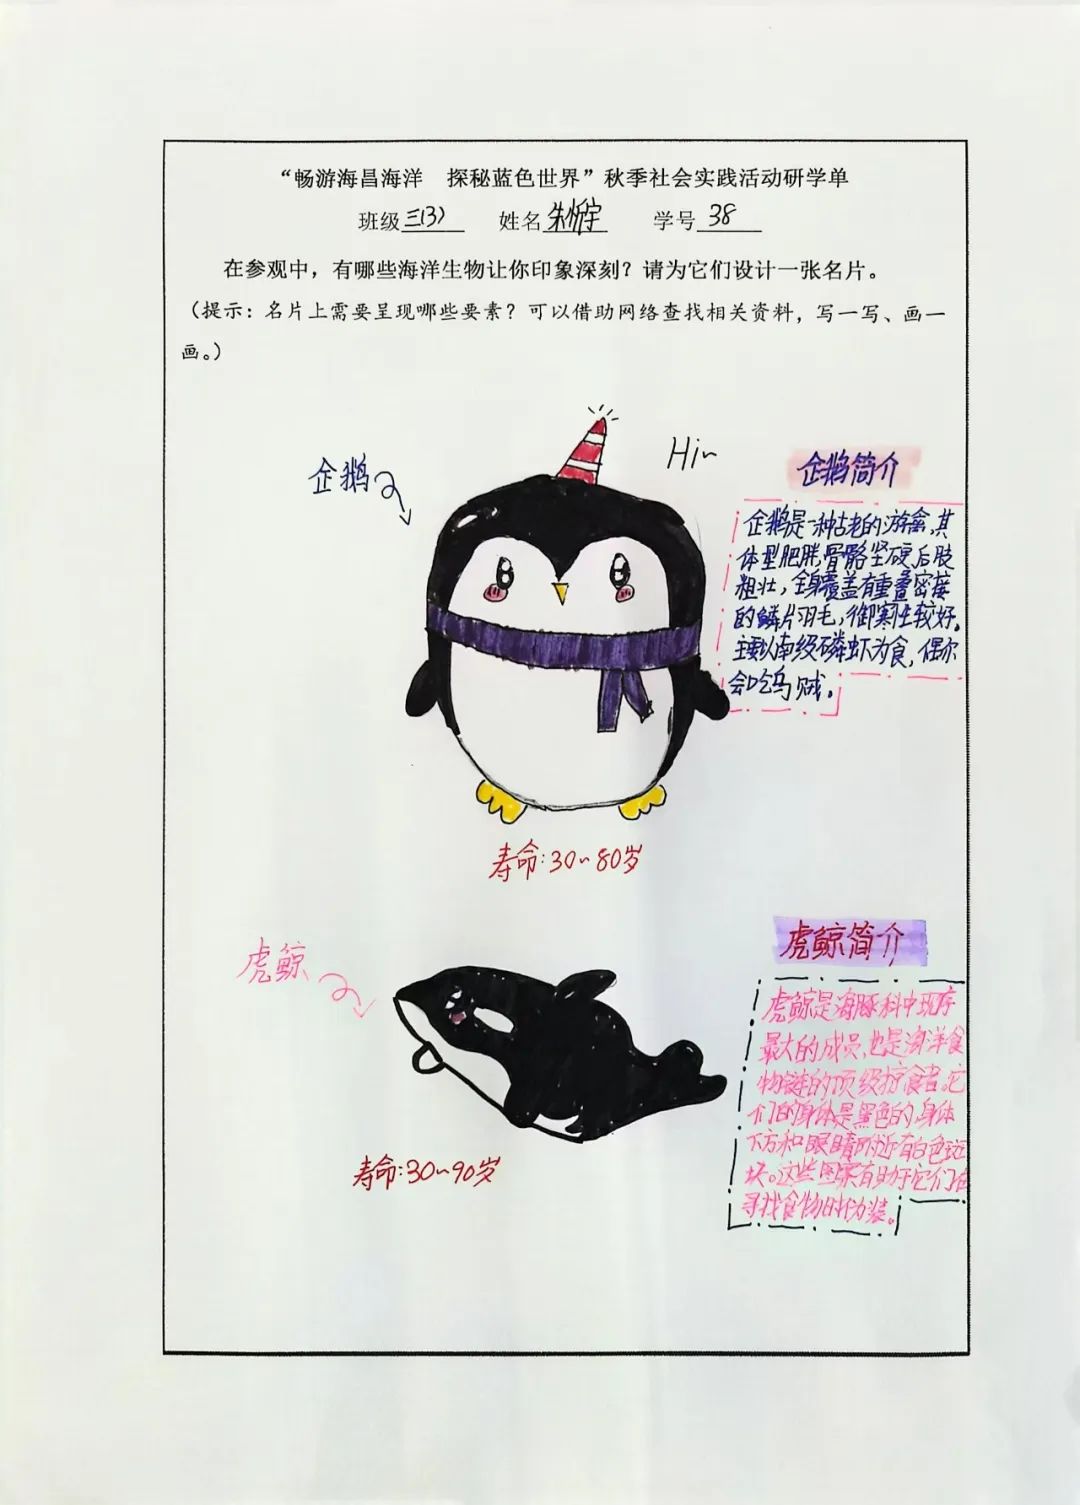 “畅游海昌海洋　探秘蓝色世界”秋季社会实践活动研学单
班级三(3)　姓名朱　宇　学号38
在参观中，有哪些海洋生物让你印象深刻？请为它们设计一张名片。
（提示：名片上需要呈现哪些要素？可以借助网络查找相关资料，写一写、画一
画。）
Hi~
企鹅
企鹅简介
企鹅是一种古老的游禽,其
体型肥胖,骨骼坚硬,后肢
粗壮，全身覆盖有重叠密接
的鳞片羽毛，御寒性较好。
主要以南极磷虾为食，偶尔
会吃乌贼。
寿命:30~80岁
虎鲸
虎鲸简介
虎鲸是海豚科中现存
最大的成员,也是海洋食
物链的顶级掠食者。它
们的身体是黑色的,身体
下方和眼睛附近有白色斑
块。这些图案有助于它们在
寻找食物时伪装。
寿命:30~90岁